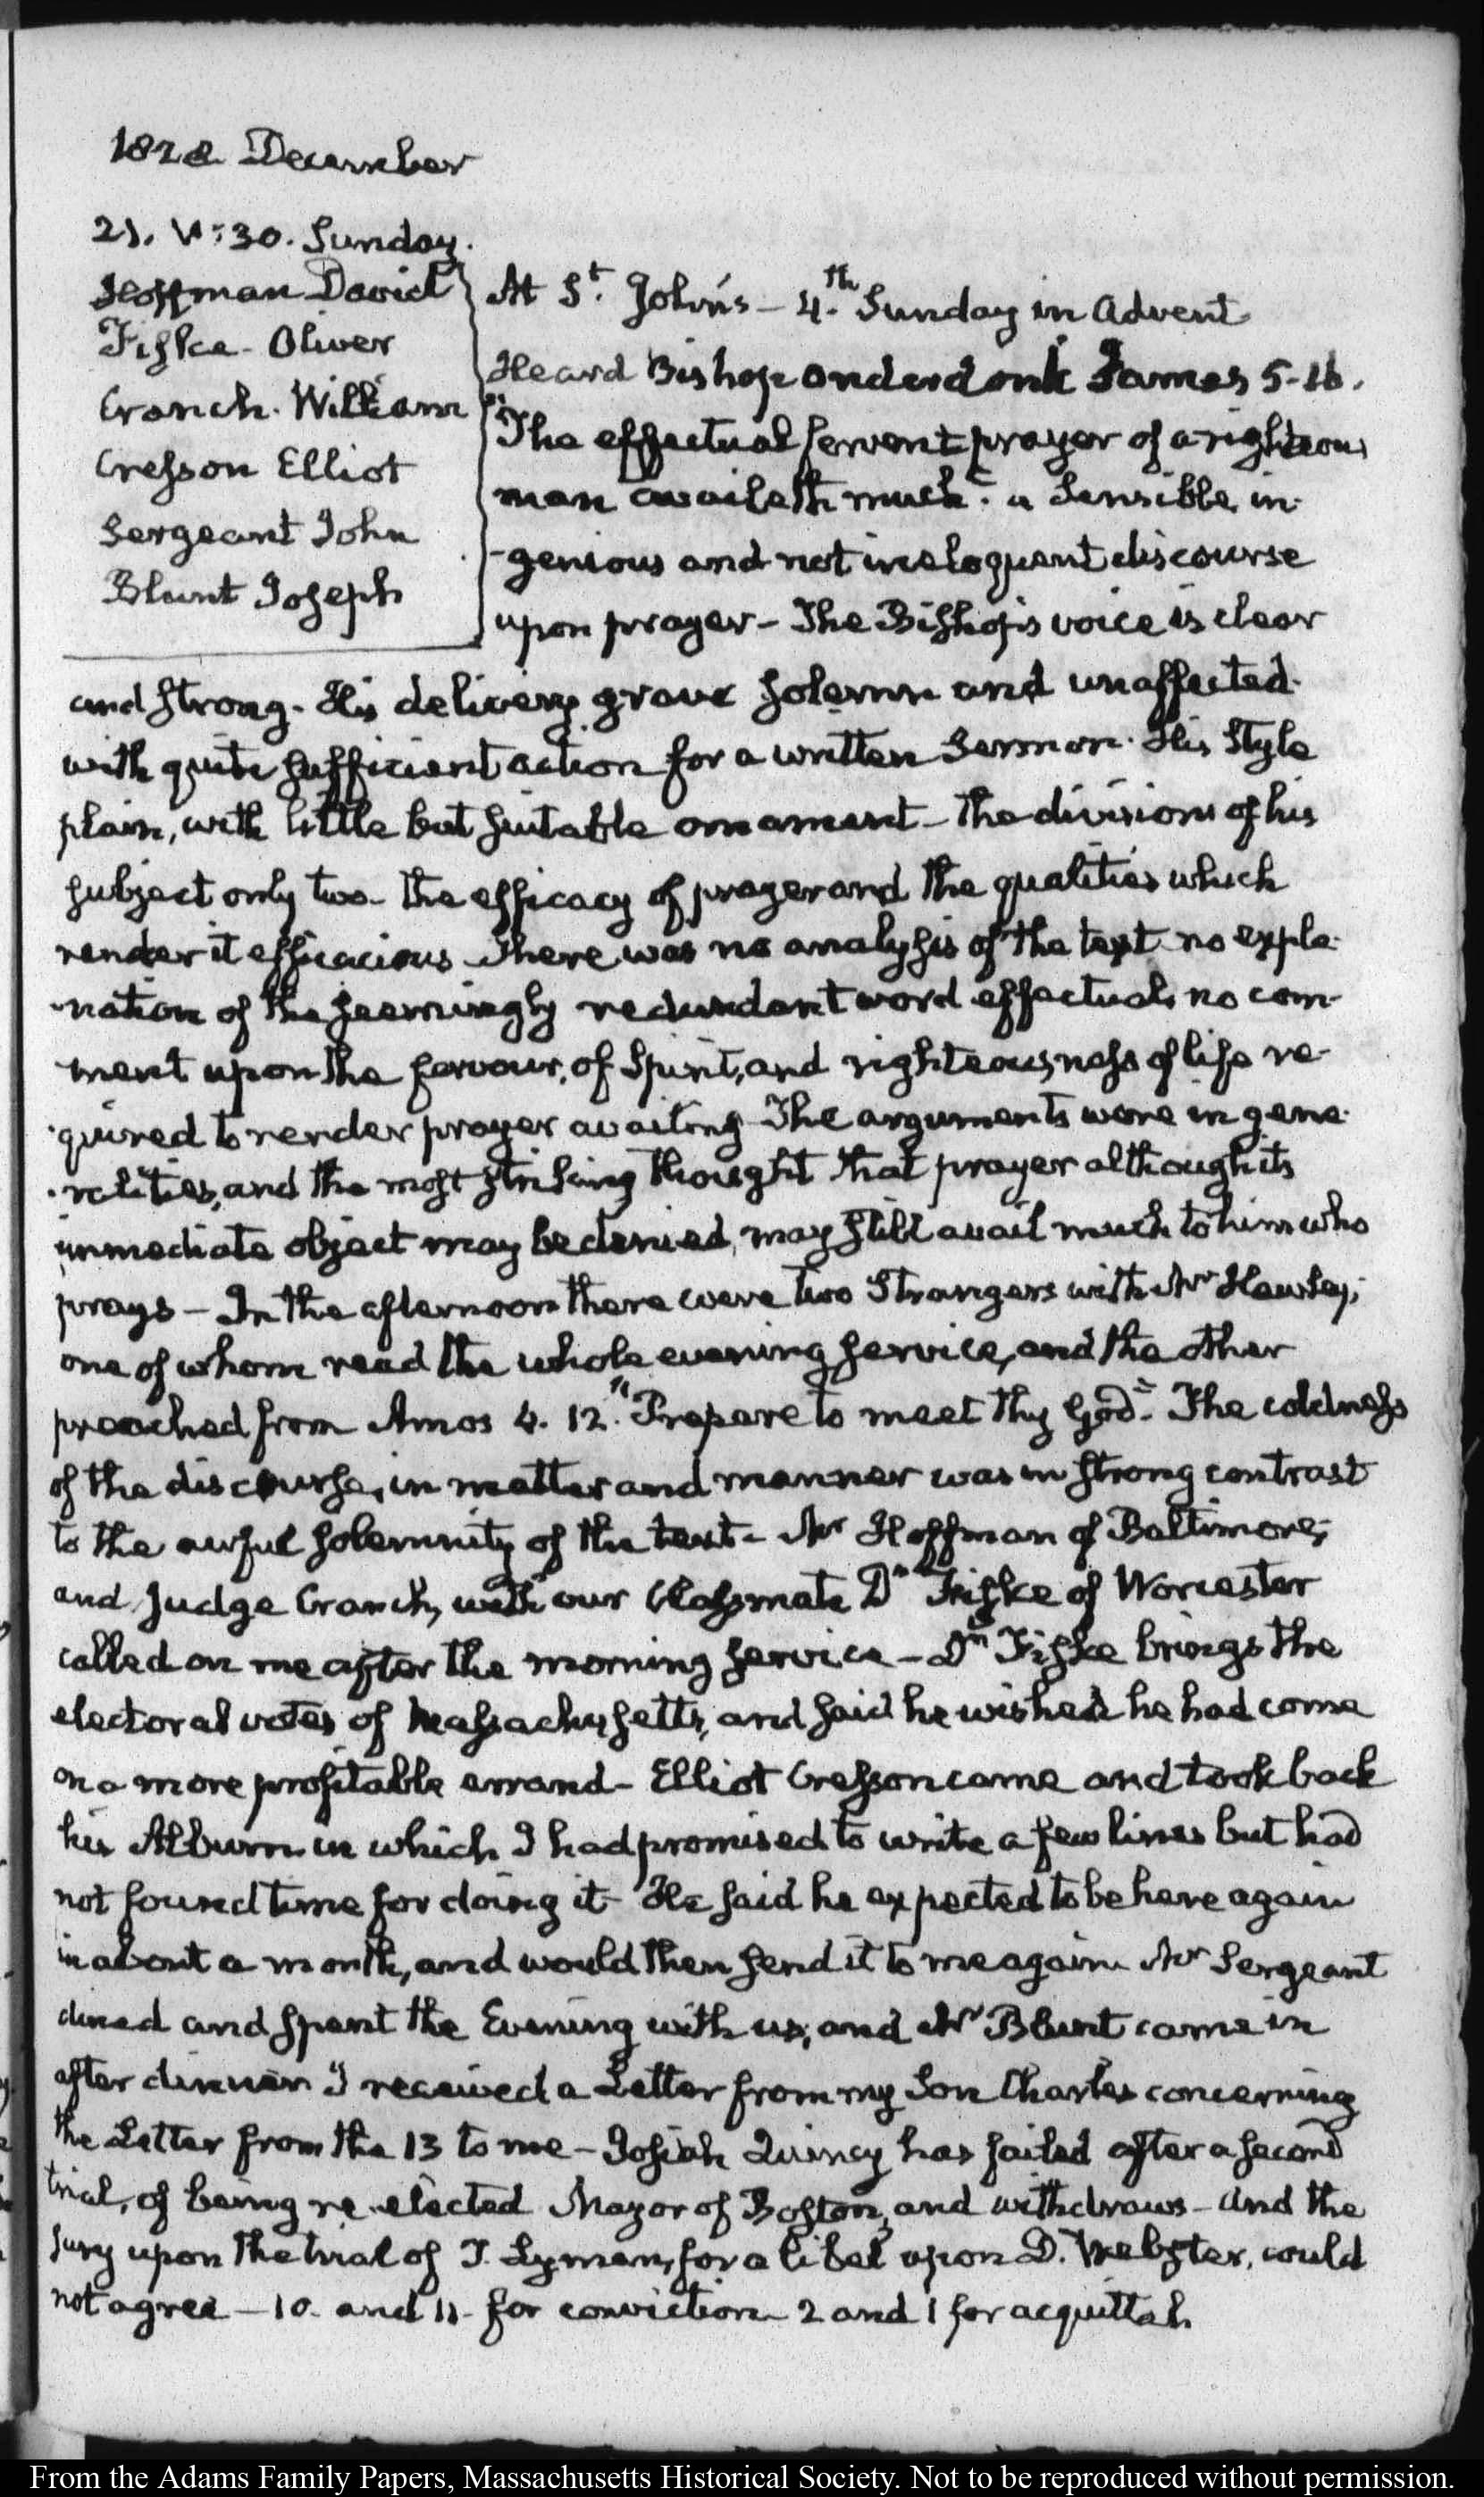 1828 December
21. V:30. Sunday.
Hoffman David
Fiske - Oliver
Cranch. William
Cresson Elliot
Sergeant John
Blunt Joseph
At St. John's - 4.th Sunday in Advent
Heard Bishop Onderdonk James 5-16.
"The effectual fervent prayer of a righteous
man availeth much". a sensible, in-
-genious and not ineloquent discourse
upon prayer - The Bishop's voice is clear
and strong. His delivery grave solemn and unaffected.
with quite sufficient action for a written Sermon. His Style
plain, with little but suitable ornament - The divisions of his
subject only two - the efficacy of prayer and the qualities which
render it efficacious. There was no analysis of the text no expla-
-nation of the seemingly redundant word effectual, no com-
-ment upon the fervour, of Spirit, and righteousness of life re-
-quired to render prayer availing. The arguments were in gene-
-ralities, and the most striking thought that prayer although its
immediate object may be denied, may still avail much to him who
prays - In the afternoon there were two Strangers with Mr Hawley;
one of whom read the whole evening service, and the other
preached from Amos 4. 12. "Prepare to meet thy God". The coldness
of the discourse, in matter and manner was in strong contrast
to the awful solemnity of the text - Mr Hoffman of Baltimore;
and Judge Cranch, with our Classmate Dr Fiske of Worcester
called on me after the morning service - Dr Fiske brings the
electoral votes of Massachusetts, and said he wished he had come
on a more profitable errand - Elliot Cresson came and took back
his Album in which I had promised to write a few lines but had
not found time for doing it - He said he expected to be here again
in about a month, and would then send it to me again. Mr Sergeant
dined and spent the Evening with us, and Mr Blunt came in
after dinner. I received a Letter from my Son Charles concerning
the Letter from the 13 to me - Josiah Quincy has failed after a second
trial, of being re-elected Mayor of Boston, and withdraws - And the
Jury upon the trial of T. Lyman, for a libel upon D. Webster, could
not agree - 10. and 11. for conviction 2 and 1 for acquittal.
From the Adams Family Papers, Massachusetts Historical Society. Not to be reproduced without permission.